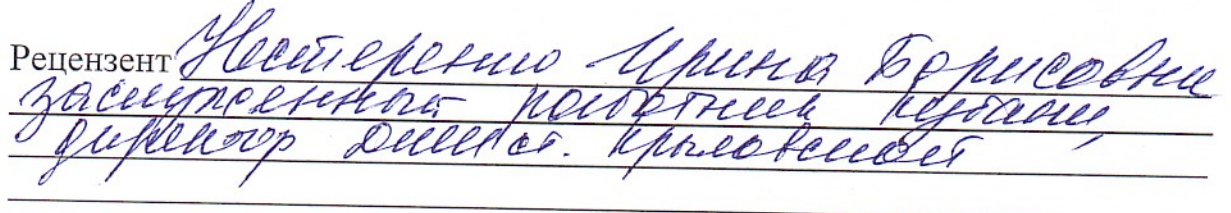 Рецензент Нестеренко Ирина Борисовна
заслуженный работник Кубани,
директор ДШИ ст. Крыловской